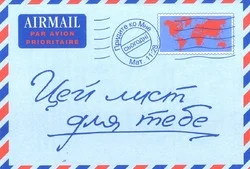 AIRMAIL
PAR AVION
PRIORITAIRE
Прийдіть ко Мне
сьогодні
Мат. 11:28
Цей лист
для тебе